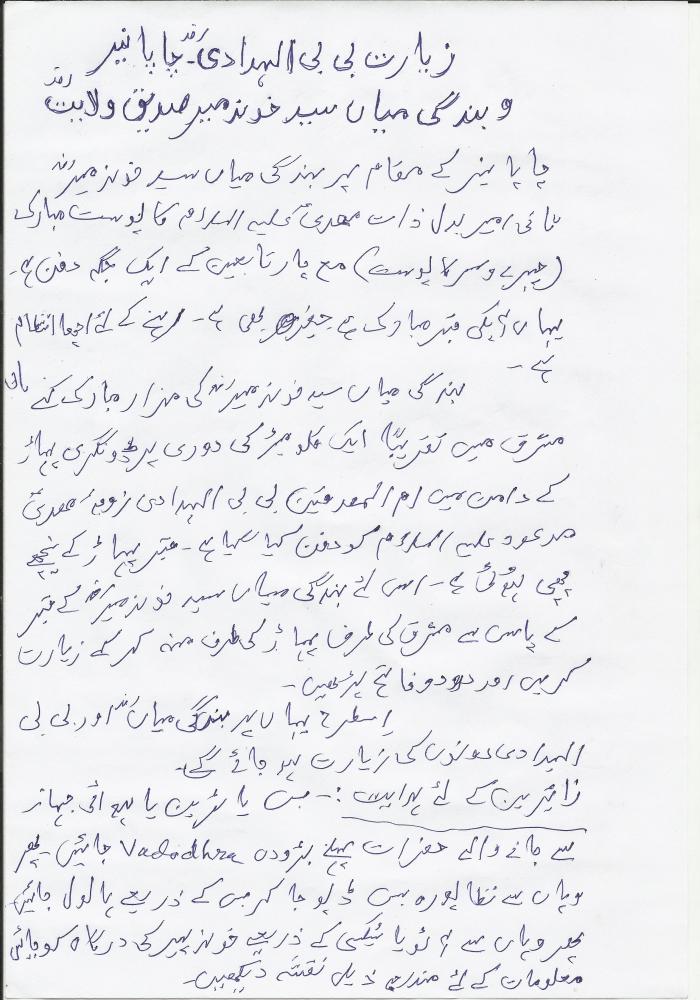 زیارت بی بی الہدادیؓ۔ چاپانیر
و بندگی میاں سید خوندمیر صدیق ولایتؓ
چاپانیر کے مقام پر بندگی میاں سید خوندمیرؓ
ثانی امیر بدل ذات مھدی علیہ السلام کا پوست مبارک
(چہرے و سر کا پوست) مع چار تابعین کے ایک جگہ دفن ہے۔
یہاں آپکی قبر مبارک ہے بھی ہے۔ رہنے کے لئے اچھا انتظام
ہے۔
بندگی میاں سید خوندمیرؓ کی مزار مبارک کے
مشرق میں تقریباً ایک کلومیٹر کی دوری پر ڈونگری پہاڑ
کے دامن میں ام المصدقین بی بی الہدادی زوجۂ مھدی
موعود علیہ السلام کو دفن کیا گیا ہے۔ قبر پہاڑ کے نیچے
چھپی ہوئی ہے۔ اس لئے بندگی میاں سید خوندمیرؓ کے قبر
کے پاس سے مشرق کی طرف پہاڑ کی طرف منہ کر کے زیارت
کریں اور درود فاتحہ پڑھیں۔
اسطرح یہاں پر بندگی میاںؓ اور بی بی
الہدادی دونوں کی زیارت ہو جائے گی۔
زائرین کے لئے ہدایت :- بس یا ٹرین یا ہوائی جہاز
سے جانے والے حضرات پہلے بڑودہ Vadodhra جائیں پھر
وہاں سے نظاپورہ بس ڈپو جا کر بس کے ذریعے ہالول جائیں
پھر وہاں سے آٹو یا ٹیکسی کے ذریعے خوندپیر کی درگاہ کو جائیں
معلومات کے لئے مندرجہ ذیل نقشہ دیکھیں۔